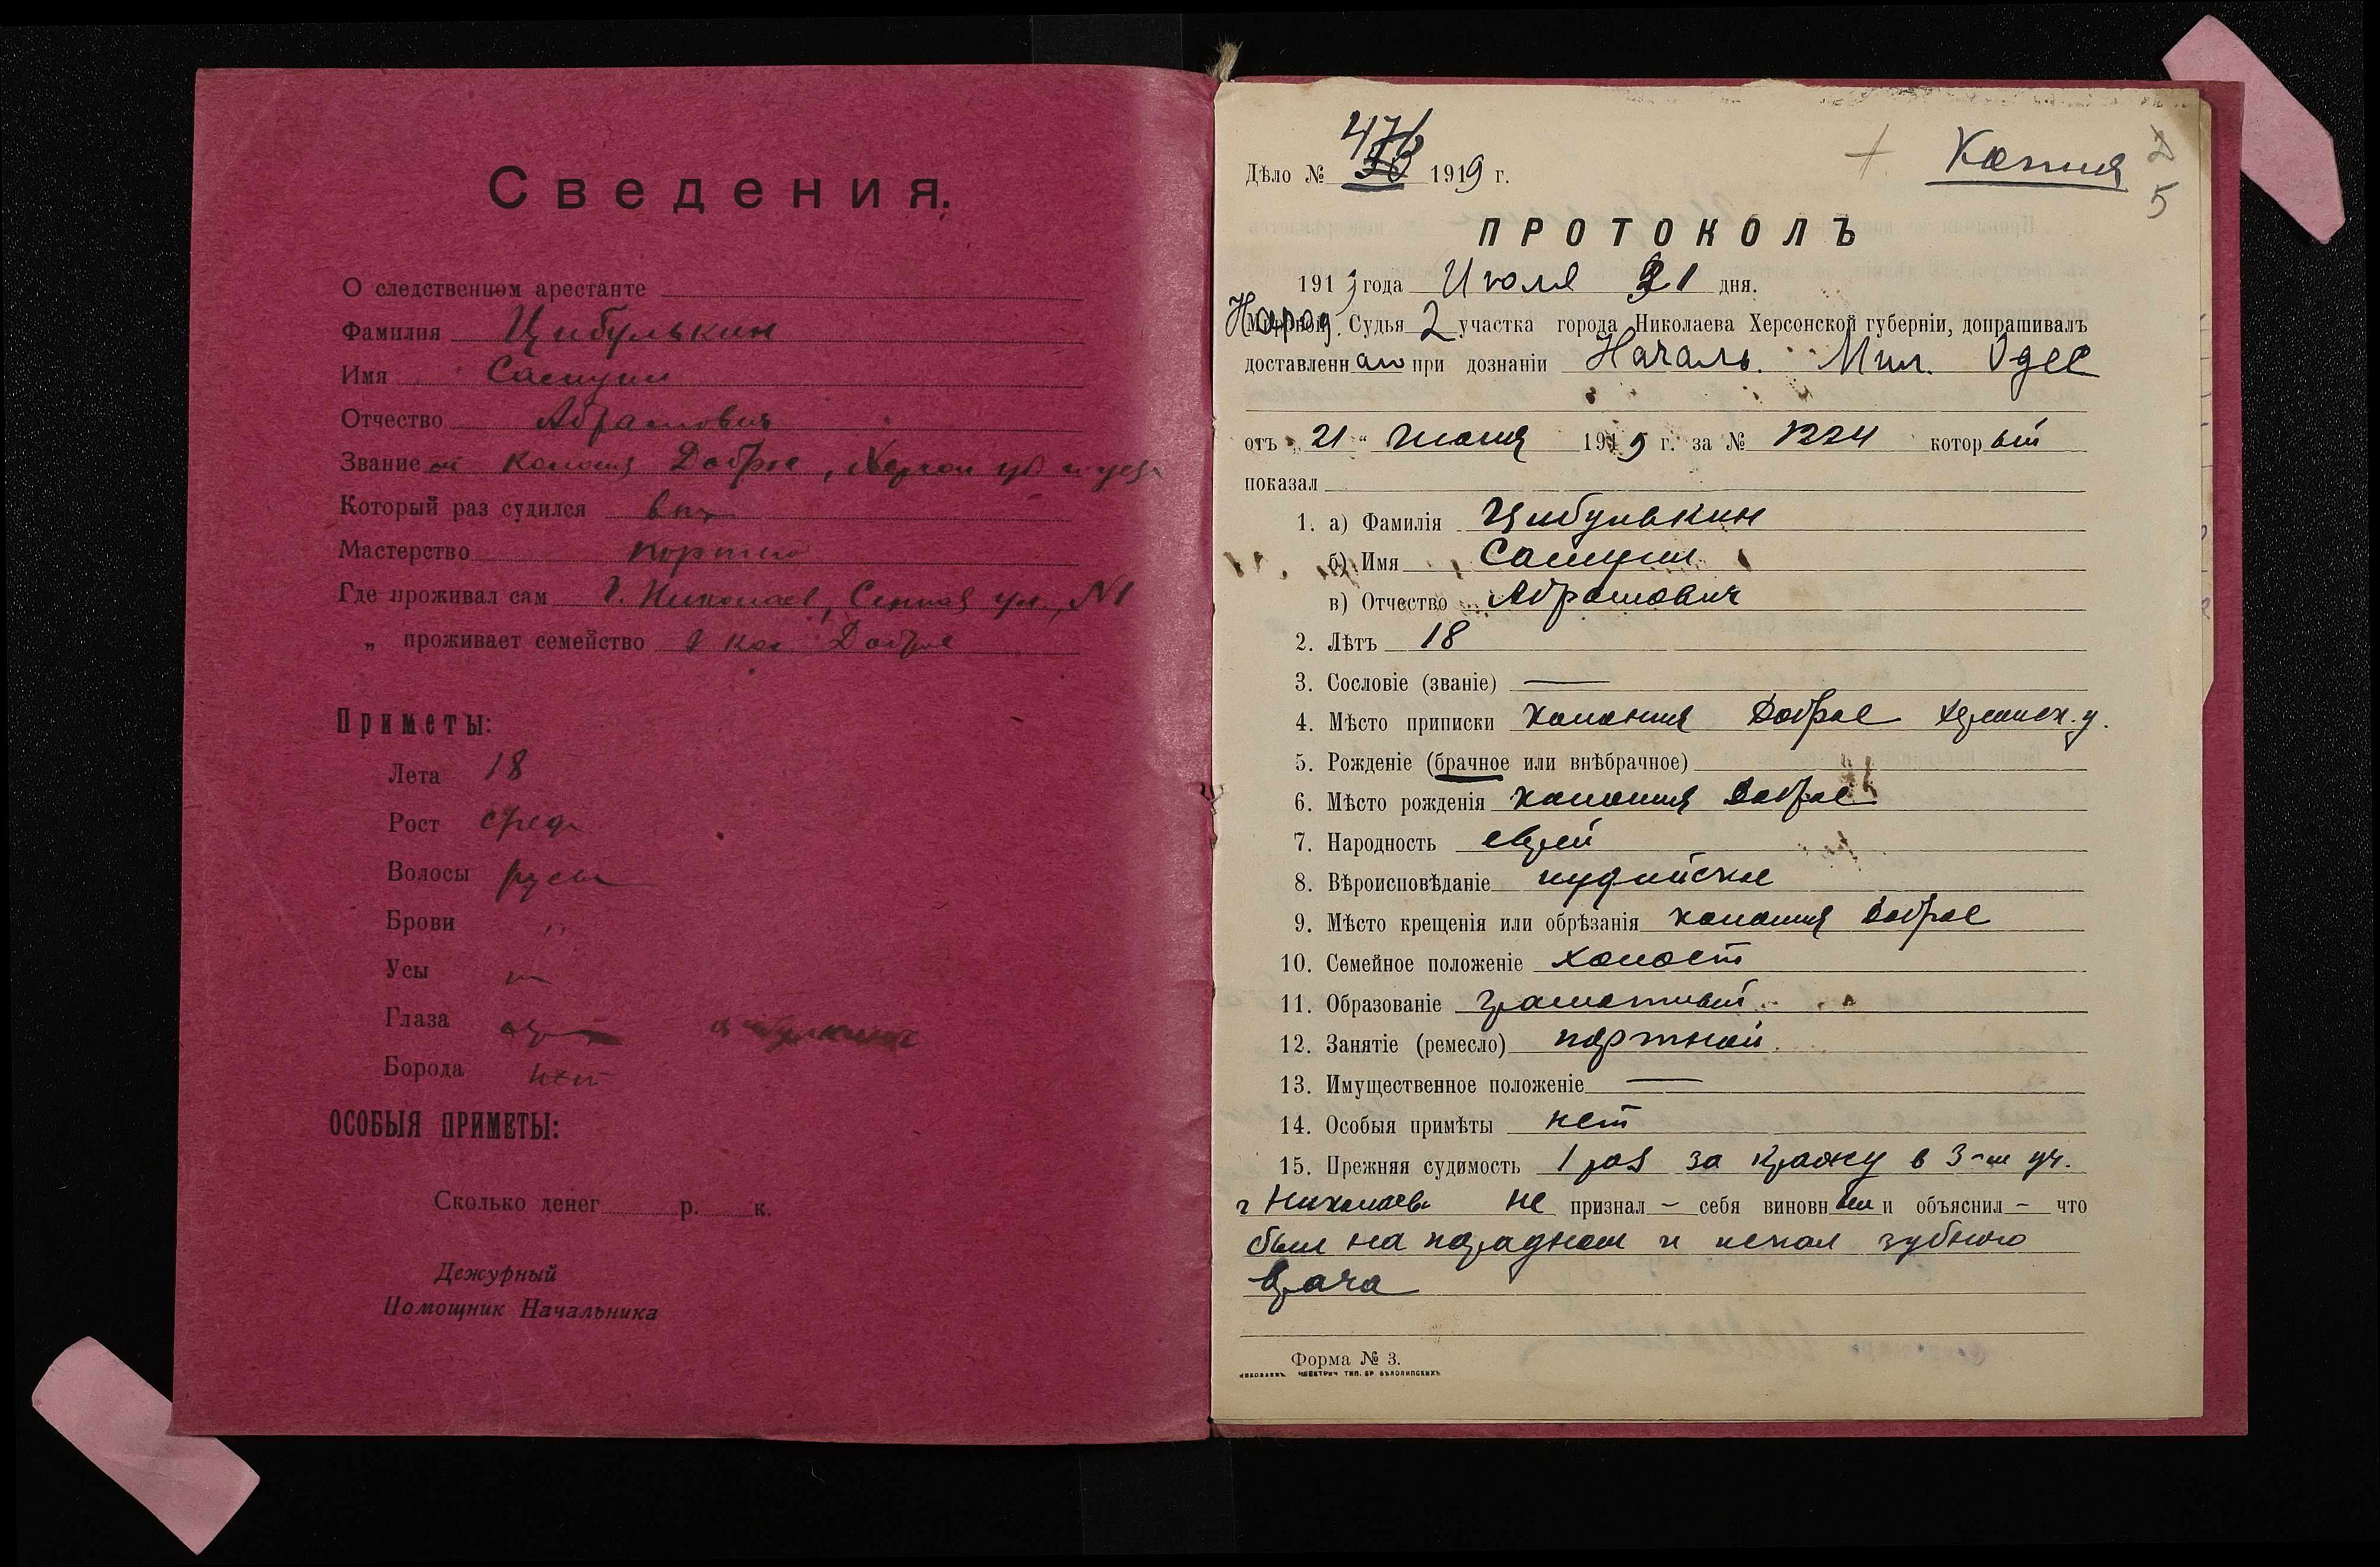 Сведения.
О следственном арестанте
Фамилия Цибулькин
Имя Самуил
Отчество Абрамович
Звание колония Доброе, Херсон губ и уезд
Который раз судился
Мастерство портной
Где проживал сам г. Николаев, Сенная ул., №1
„ проживает семейство в кол. Доброе
Приметы:
Лета 18
Рост сред
Волосы русы
Брови "
Усы
Глаза
Борода нет
ОСОБЫЯ ПРИМЕТЫ:
Сколько денег р. к.
Дежурный
Помощник Начальника
Копия
2
5
Дѣло № 476 1919 г.
ПРОТОКОЛЪ
1919 года Июля 21 дня.
Народ. Судья 2 участка города Николаева Херсонской губерніи, допрашивалъ
доставленнаго при дознаніи Началь. Мил. Одес
отъ „21“ июля 1919 г. за № 1224 который
показал
1. а) Фамилія Цибулькин
б) Имя Самуил
в) Отчество Абрамович
2. Лѣтъ 18
3. Сословіе (званіе) —
4. Мѣсто приписки колония Доброе Херсонск. у.
5. Рожденіе (брачное или внѣбрачное)
6. Мѣсто рожденія колония Доброе
7. Народность еврей
8. Вѣроисповѣданіе иудейское
9. Мѣсто крещенія или обрѣзанія колония Доброе
10. Семейное положеніе холост
11. Образованіе грамотный
12. Занятіе (ремесло) портной.
13. Имущественное положеніе —
14. Особыя примѣты нет
15. Прежняя судимость 1 раз за кражу в 3-м уч.
г Николаева не признал – себя виновным и объяснил – что
был на парадном и искал зубного
врача
Форма № 3.